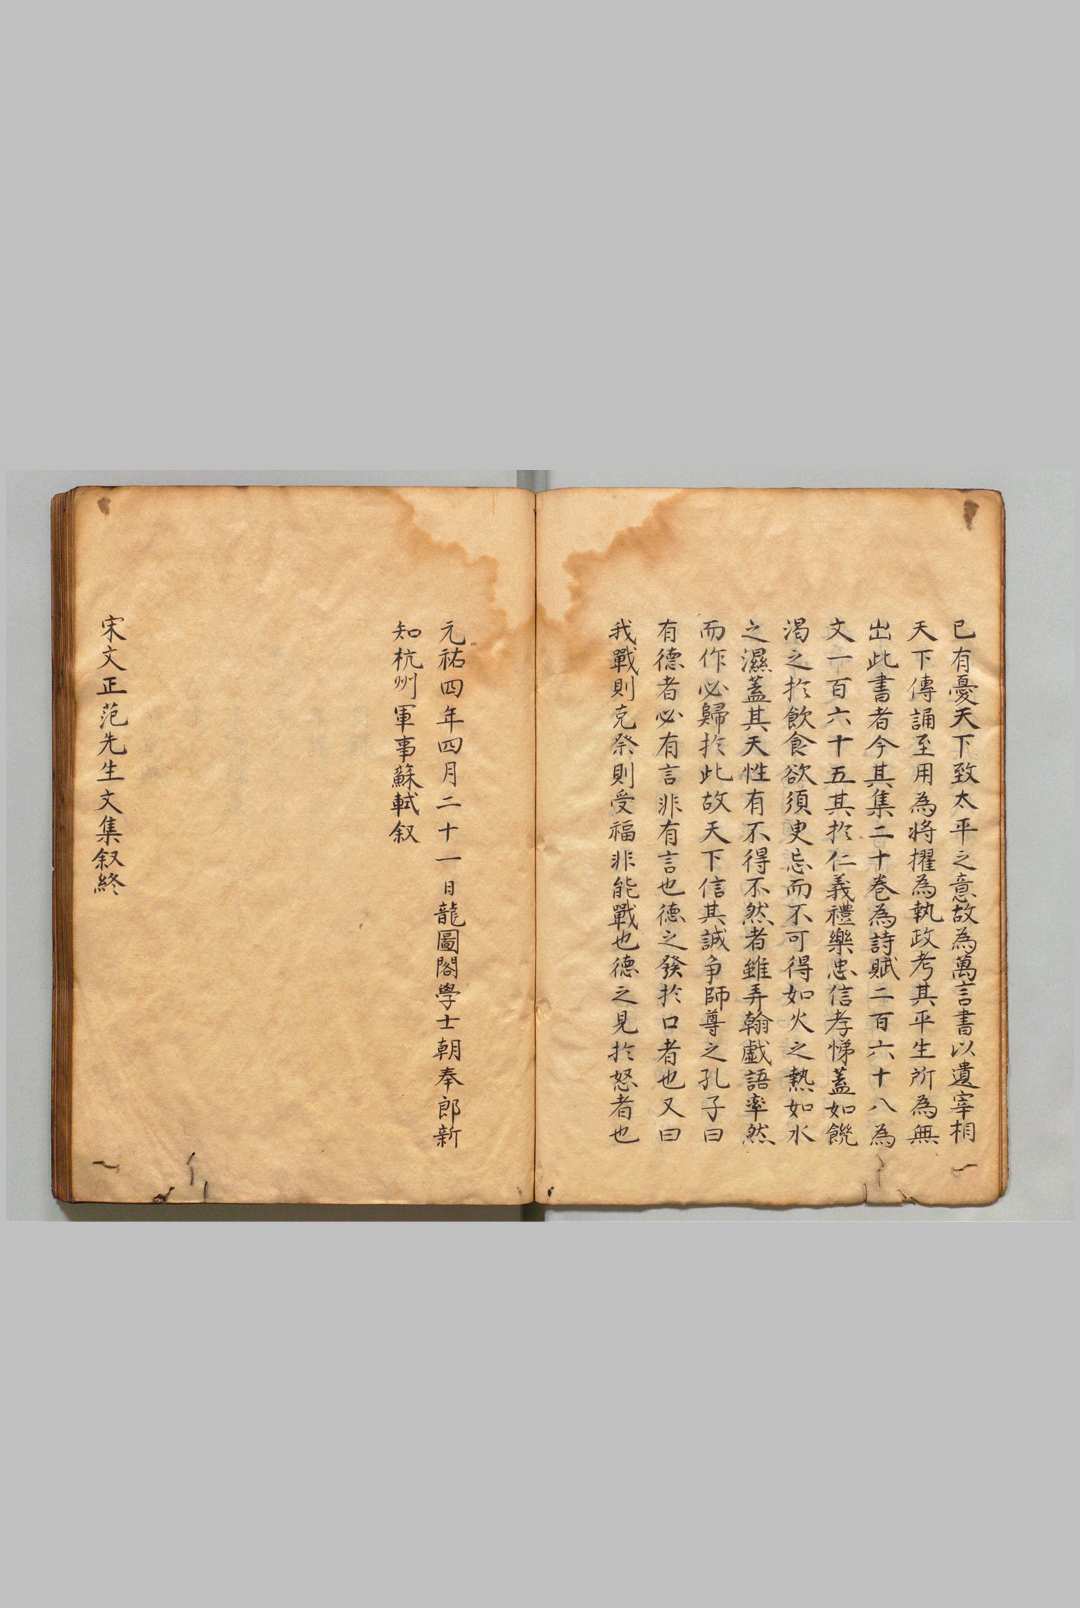 已有憂天下致太平之意故為萬言書以遺宰相
天下傳誦至用為將擢為執政考其平生所為無
出此書者今其集二十卷為詩賦二百六十八為
文一百六十五其扵仁義禮樂忠信孝悌蓋如饑
渴之扵飲食欲須臾忘而不可得如火之熱如水
之濕蓋其天性有不得不然者雖弄翰戲語率然
而作必歸扵此故天下信其誠争師尊之孔子曰
有德者必有言非有言也德之發扵口者也又曰
我戰則克祭則受福非能戰也德之見扵怒者也
元祐四年四月二十一日龍圖閣學士朝奉郎新
知杭州軍事蘇軾叙
宋文正范先生文集叙終